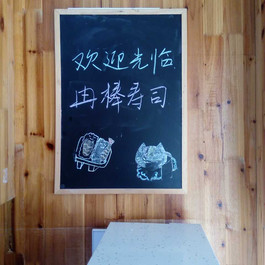 欢迎光临
冉棒寿司